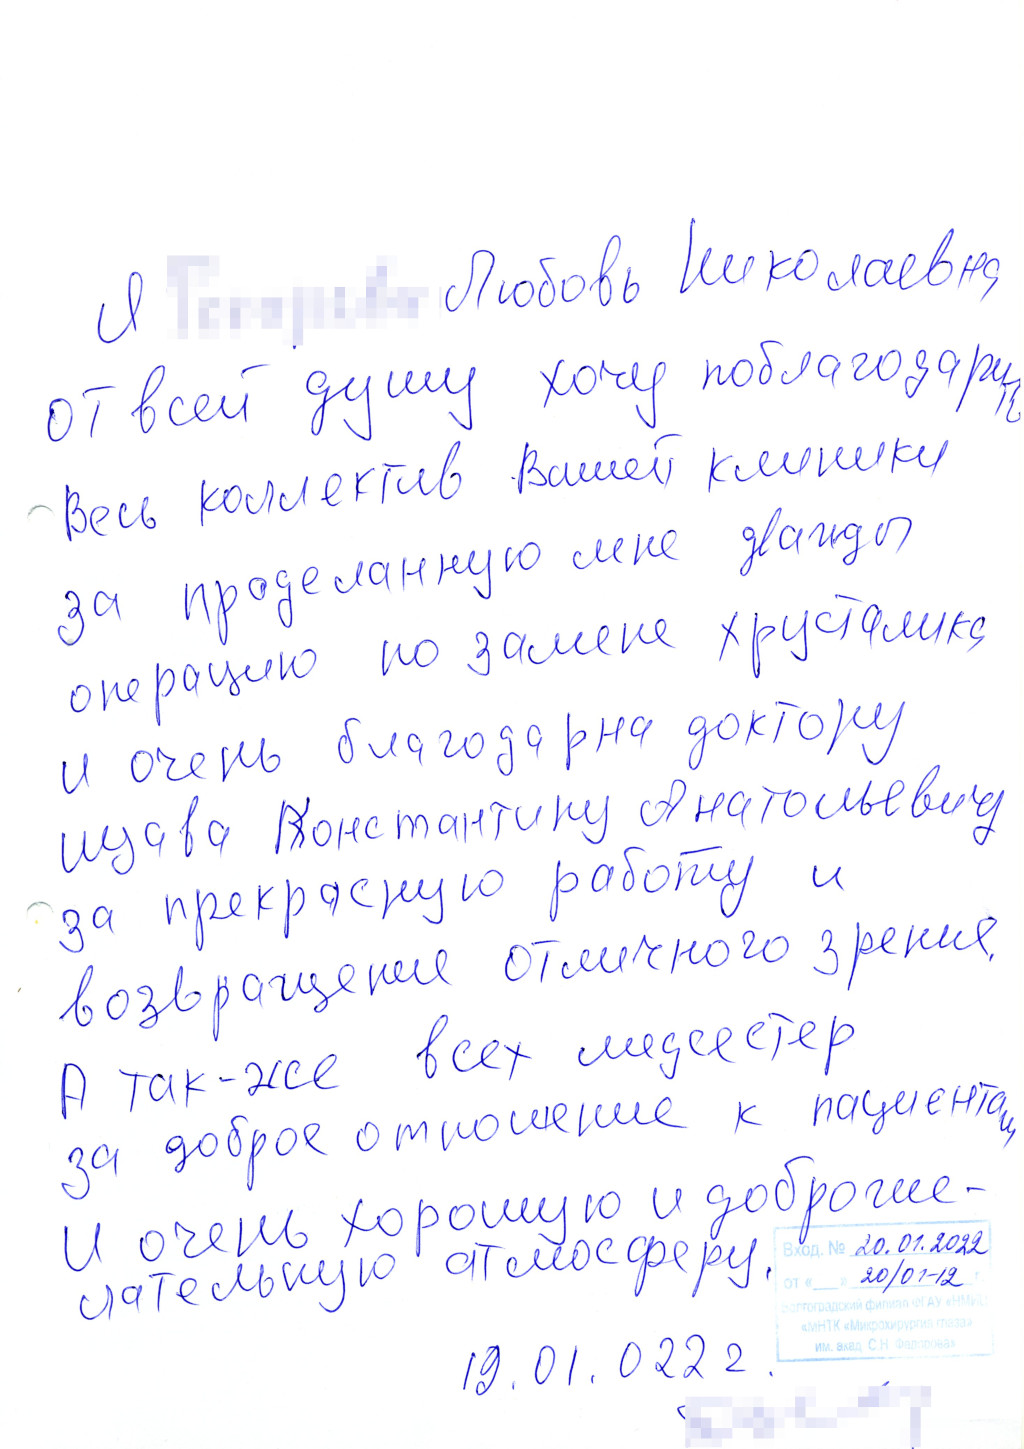 Я Любовь Николаевна
от всей душу хочу поблагодарить
Весь коллектив Вашей клиники
за проделанную мне дважды
операцию по замене хрусталика
и очень благодарна доктору
Константину Анатольевичу
за прекрасную работу и
возвращение отличного зрения.
А так-же всех медсестер
за доброе отношение к пациентам
И очень хорошую и доброже-
лательную атмосферу.
Вход. № 20.01.2022
от «__» 20/01-12 г.
Волгоградский филиал ФГАУ «НМИЦ
«МНТК «Микрохирургия глаза»
им. акад. С.Н. Федорова»
19.01.022 г.